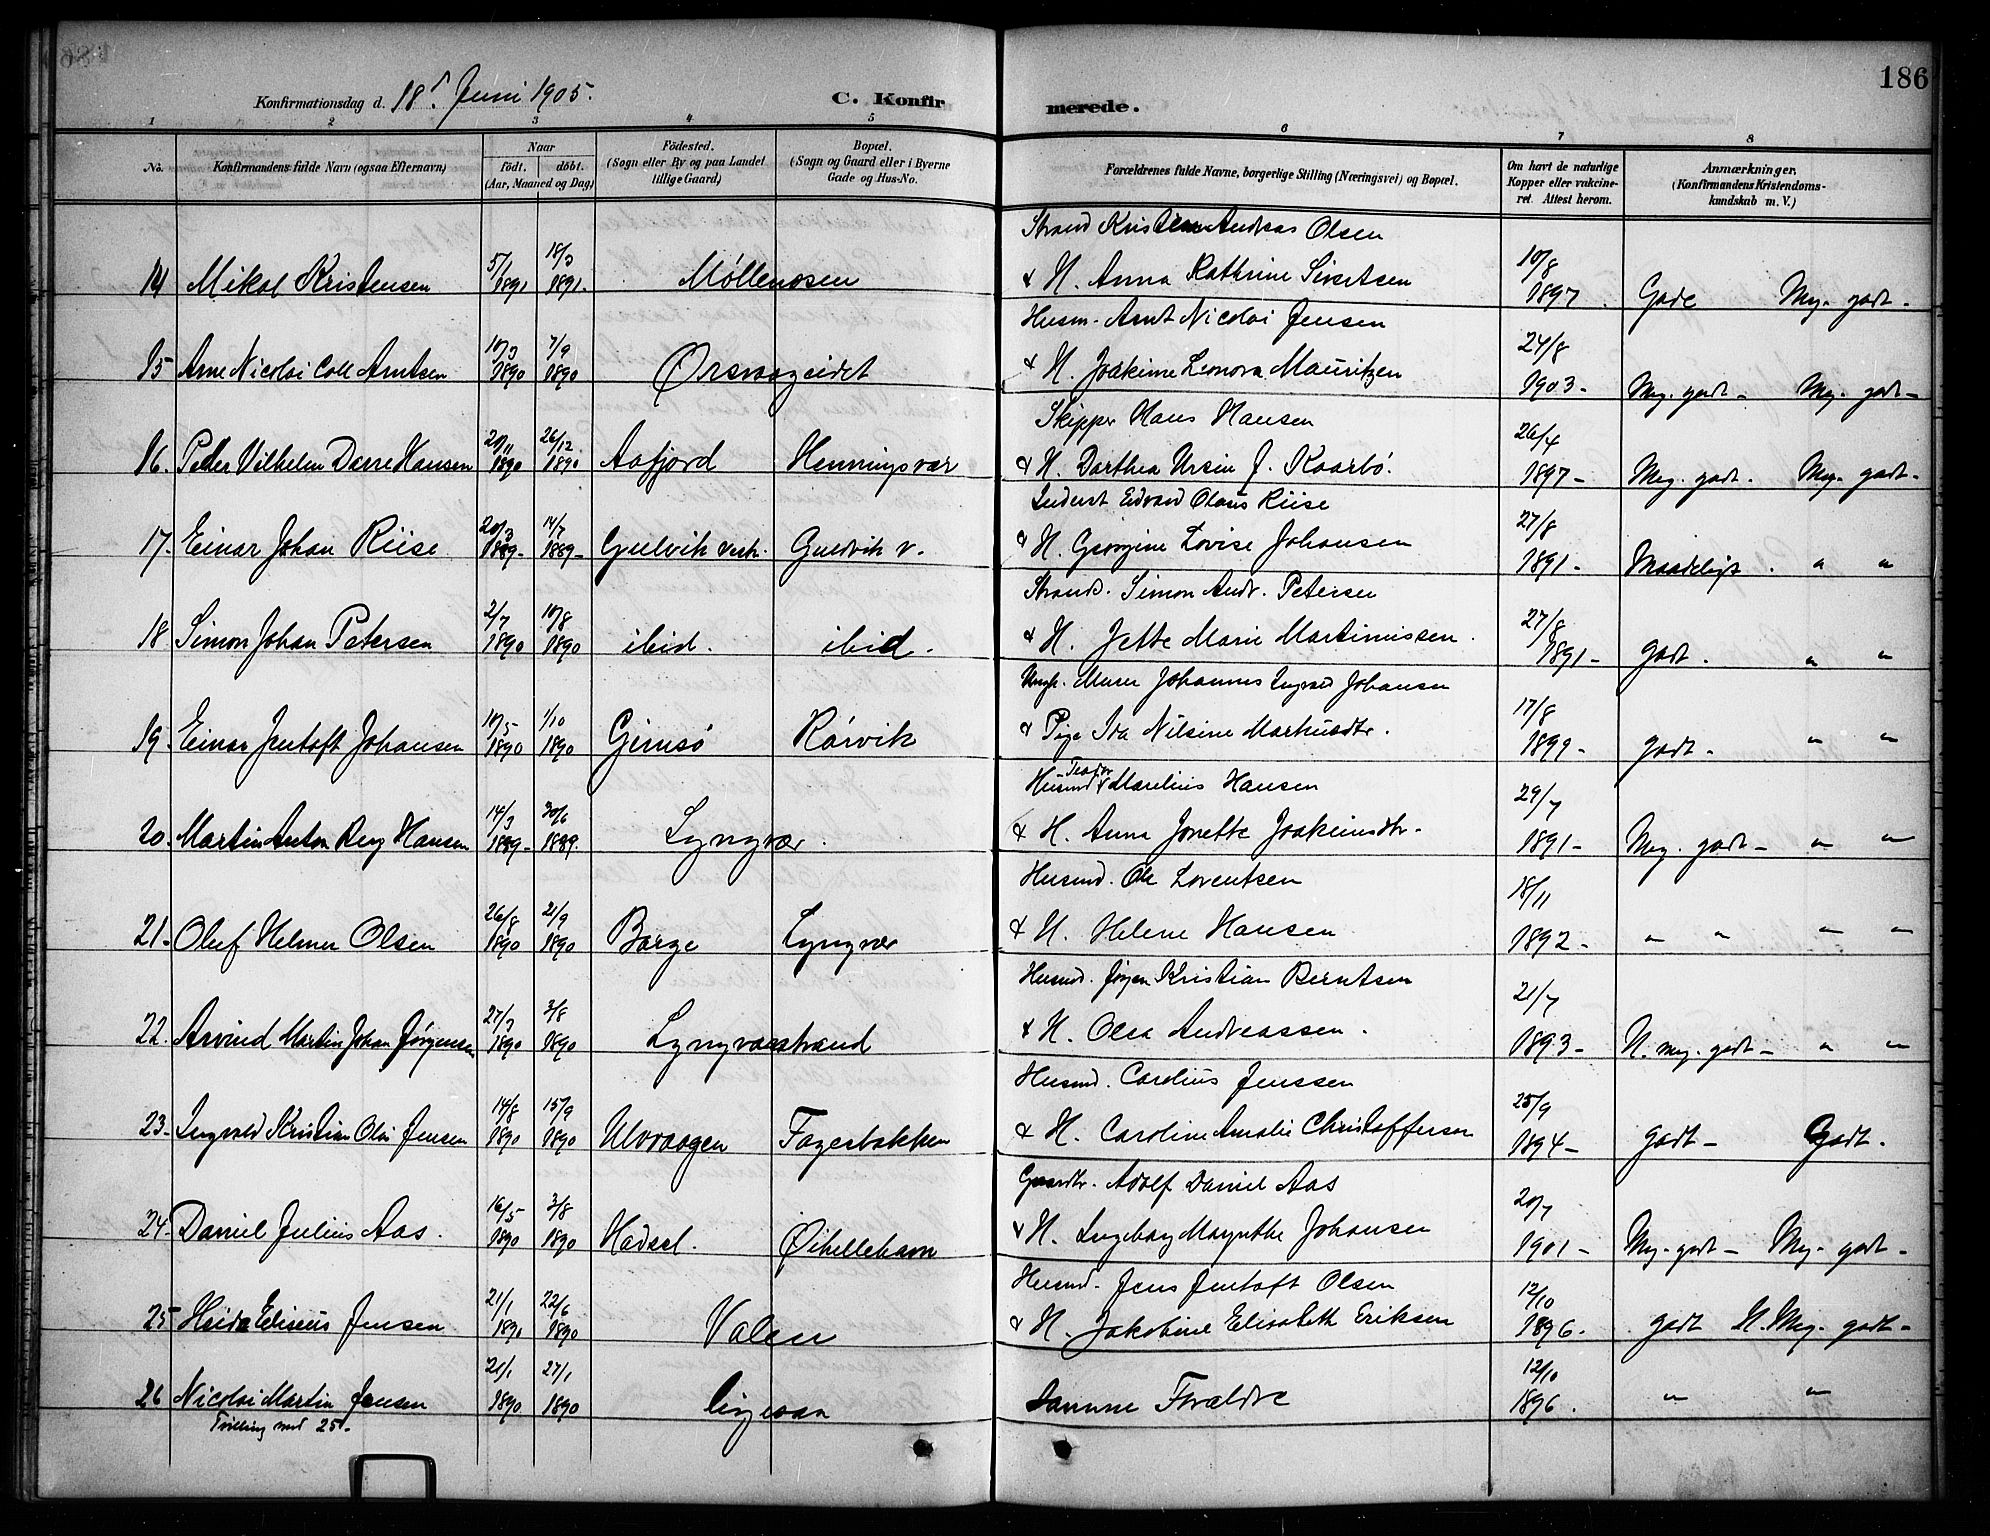 186
Konfirmationsdag d. 18d Juni 1905.
C. Konfirmerede.
1 2 3 4 5 6 7 8
No. Konfirmandens fulde Navn (ogsaa Efternavn) Naar født. døbt. (Aar, Maaned og Dag) Fødested. (Sogn eller By og paa Landet tillige Gaard) Bopæl. (Sogn og Gaard eller i Byerne Gade og Hus-No. Forældrenes fulde Navne, borgerlige Stilling (Næringsvei) og Bopæl. Om havt de naturlige Kopper eller vakcineret. Attest herom. Anmærkninger. (Konfirmandens Kristendomskundskab m. V.)
Strand Kristen Andreas Olsen
14 Mikal Kristensen 5/1 1891 18/3 1891. Møllenosen & H. Anna Kathrine Sivertsen 10/8 1897. Gode Meg. godt.
Husm. Arnt Nicolai Jensen
15 Arne Nicolai Coll Arntsen 10/3 1890 7/9 1890 Ørsvaageidet & H. Joakime Leonora Mauritzen 24/8 1903 - Meg. godt - Meg. godt -
Skipper Hans Hansen
16. Peder Vilhelm Darre Hansen 20/11 1890 26/12 1890 Aafjord Henningsvær & H. Dorthea Ursin f. Kaarbø. 26/4 1897 - Meg. godt. Meg. godt.
Inderst Edvard Olaus Riise
17. Einar Johan Riise 20/3 1889 - 14/7 1889 - Gulvik vestr. Gulvik v. & H. Georgine Lovise Johansen 27/8 1891 - Maadeligt. " "
Strands. Simon Andr. Petersen
18. Simon Johan Petersen 2/7 1890 10/8 1890 ibid. ibid. & H. Jette Marie Martinussen. 27/8 1891 - godt. " "
Ungk. Murer Johannes Ingvard Johansen
19. Einar Jentoft Johansen 10/5 1890 1/10 1890 Gimsø Rørvik & Pige Ida Nilsine Markusdtr. 17/8 1899 - godt - " "
Husmd Teodor Marelius Hansen
20. Martin Anton Berg Hansen 14/3 1889 - 30/6 1889. Lyngvær. & H. Anna Jonette Joakimsdtr. 29/7 1891 - Meg. godt - " "
Husmd. Ole Lorentsen
21. Oluf Helmer Olsen 26/8 1890 21/9 1890 Borge Lyngvær & H. Helene Hansen 18/11 1892 - " " " "
Husmd. Jørgen Kristian Berntsen
22. Arvind Martin Johan Jørgensen 27/3 1890 3/8 1890 Lyngværstrand & H. Olea Andreassen. 21/7 1893 - N. meg. godt - " "
Husmd. Carelius Jenssen
23. Ingvald Kristian Olai Jensen 14/8 1890 15/9 1890 Ulvvaagen Fagerbakken & H. Caroline Amalie Christoffersen 25/9 1894 - godt - Godt.
Gaardbr. Adolf Daniel Aas
24. Daniel Julius Aas. 16/5 1890 3/8 1890 Hadsel. Øihellehavn & H. Ingeborg Maynthe Johansen 20/7 1901 - Meg. godt - Meg. godt -
Husmd. Jens Jentoft Olsen
25 Eliseus Jensen 21/1 1890 22/6 1890 Valen & H. Jakobine Elisabeth Eriksen 12/10 1896. godt N. Meg. godt -
26 Nicolai Martin Jensen 21/1 1890 27/1 1890 Samme Forældre 12/10 1896. " "
Tvilling med 25.